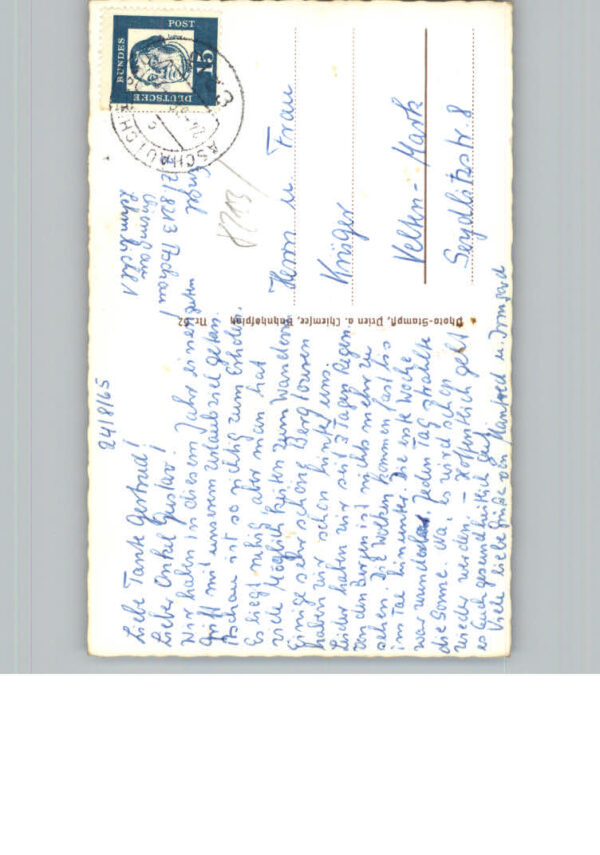 24/8/65
Liebe Tante Gertrud!
Lieber Onkel Gustav!
Wir haben in diesem Jahr einen guten
Griff mit unserem Urlaubsziel getan.
Aschau ist so richtig zum Erholen.
Es liegt ruhig aber man hat
viele Möglichkeiten zum Wandern
Einige sehr schöne Berg Touren
haben wir schon hinter uns.
Leider haben wir seit 3 Tagen Regen
Von den Bergen ist nichts mehr zu
sehen. Die Wolken kommen fast bis
ins Tal hinunter. Die erste Woche
war wunderbar. Jeden Tag strahlte
die Sonne. Na, es wird schon
wieder werden. – Hoffentlich geht
es Euch gesundheitlich gut.
Viele liebe Grüße von Manfred u. Irmgard
Engel
8213 Aschau
Chiemgau
Photo-Stampfl, Prien a. Chiemsee, Bahnhofplatz Nr. 62
8213
Herrn u. Frau
Krüger
Velten-Mark
Seydlitzstr. 8
DEUTSCHE
BUNDES
POST
15
ASCHAU